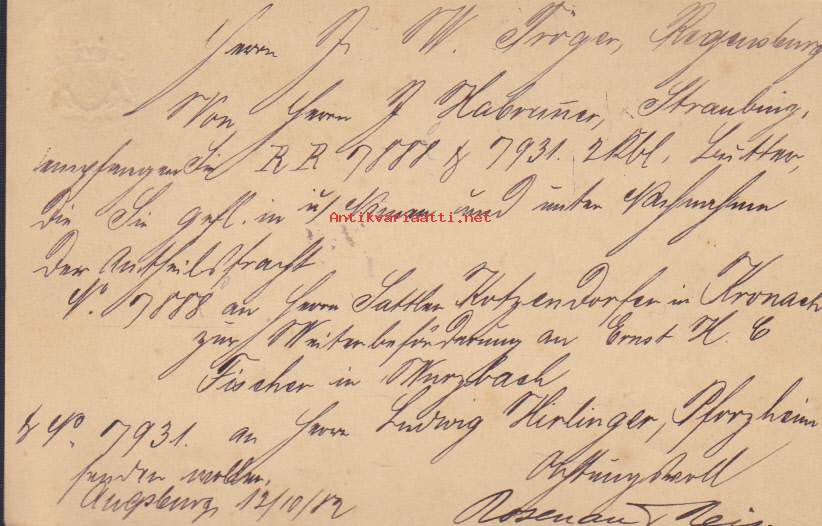 Herrn J. W. Tröger, Regensburg
Von Herrn J Habrunner, Straubing,
empfangen Sie RR 7888 & 7931. 2 Kbl. Butter,
die Sie gefl. in u/ Namen und unter Nachnahme
Antikvariaatti.net
der Antheilsfracht
No. 7888 an Herrn Sattler Kotzendorfer in Kronach
zur Weiterbeförderung an Ernst H. C
Fischer in Wurzbach
& No. 7931. an Herrn Ludwig Hirlinger, Pforzheim
senden wollen. Achtungsvoll
Augsburg, 12/10/82 Rosenau &